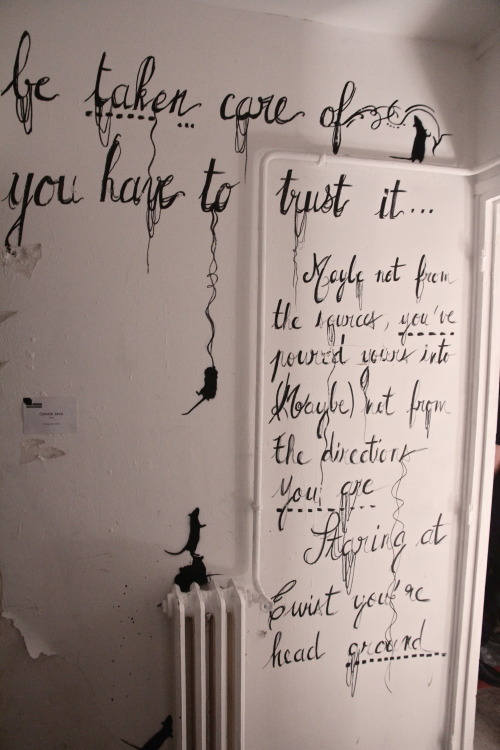 be taken care of
you have to trust it...
Maybe not from
the sources, you've
poured yours into
(Maybe) not from
the directions
you are
Staring at
Twist you're
head around